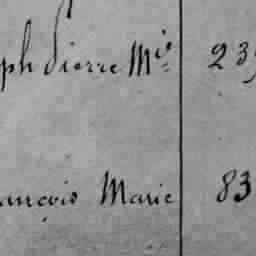 ph pierre Mie 23
ançois Marie 83